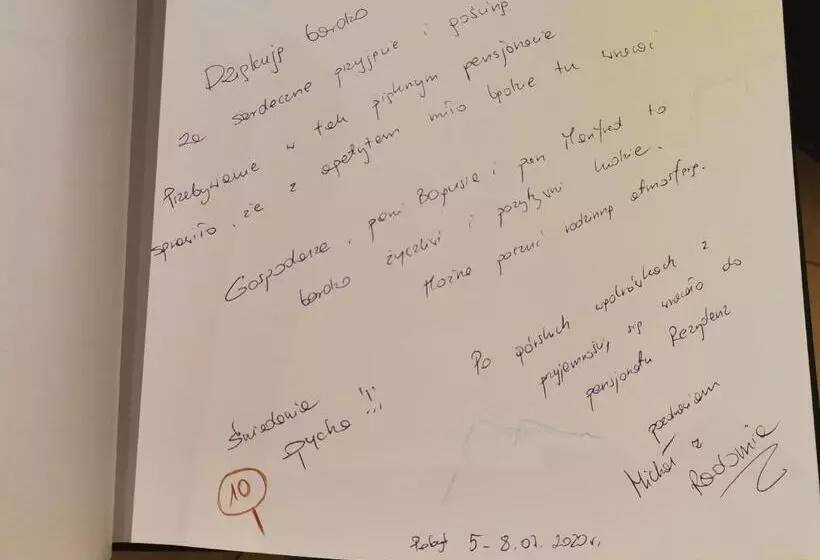 Dziękuję bardzo
za serdeczne przyjęcie i gościnę
Przebywanie w tak pięknym pensjonacie
sprawiło, że z apetytem miło będzie tu wracać
Gospodarze, pani Bogusia i pan Manfred to
bardzo życzliwi i pozytywni ludzie.
Można poczuć rodzinną atmosferę.
Po górskich wędrówkach z
przyjemnością się wracało do
pensjonatu Rezydenz
Śniadania
Pycha !!!
10
pozdrawiam
Michał z
Radomia
Pobyt 5-8.07.2020r.